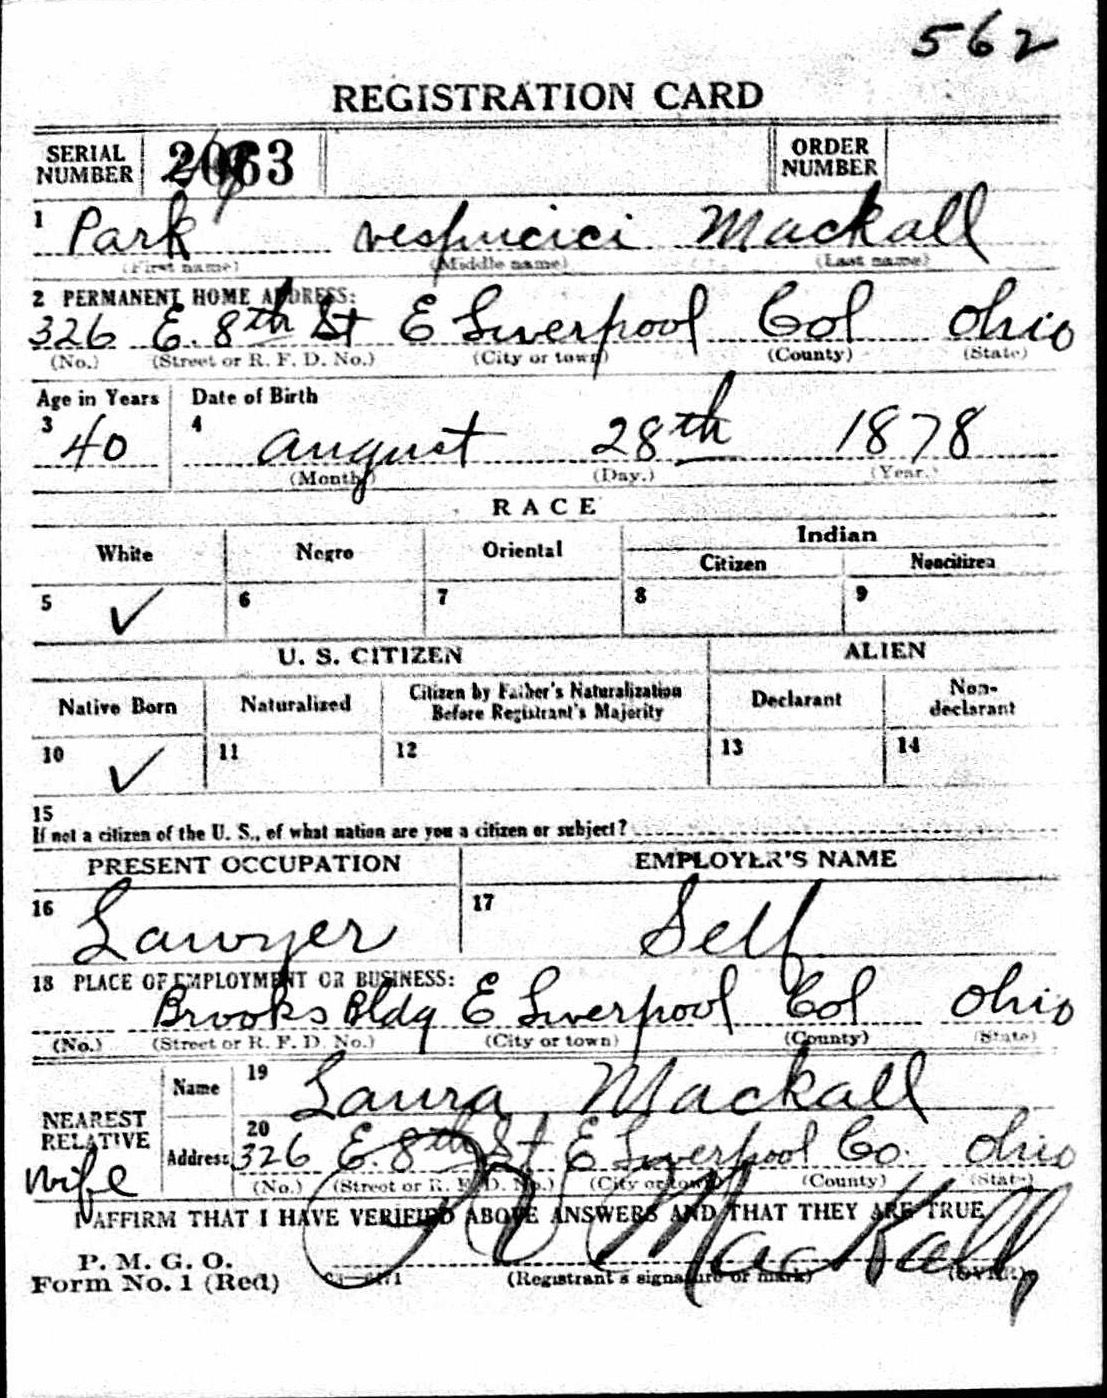 562
REGISTRATION CARD
SERIAL NUMBER 2063 ORDER NUMBER
1 Park vespucici Mackall
(First name) (Middle name) (Last name)
2 PERMANENT HOME ADDRESS:
326 E. 8th St E Liverpool Col Ohio
(No.) (Street or R. F. D. No.) (City or town) (County) (State)
Age in Years Date of Birth
3 40 4 August 28th 1878
(Month) (Day.) (Year.)
RACE
White Negro Oriental Indian
Citizen Noncitizen
5 ✓ 6 7 8 9
U. S. CITIZEN ALIEN
Native Born Naturalized Citizen by Father's Naturalization Before Registrant's Majority Declarant Non-declarant
10 ✓ 11 12 13 14
15
If not a citizen of the U. S., of what nation are you a citizen or subject?
PRESENT OCCUPATION EMPLOYER'S NAME
16 Lawyer 17 Self
18 PLACE OF EMPLOYMENT OR BUSINESS:
Brooks Bldg E Liverpool Col Ohio
(No.) (Street or R. F. D. No.) (City or town) (County) (State)
NEAREST RELATIVE Name 19 Laura Mackall
wife Address 20 326 E. 8th St E Liverpool Co. Ohio
(No.) (Street or R. F. D. No.) (City or town) (County) (State)
I AFFIRM THAT I HAVE VERIFIED ABOVE ANSWERS AND THAT THEY ARE TRUE
P. M. G. O.
Form No. 1 (Red) (Registrant's signature or mark) (OVER)
P V MacKall